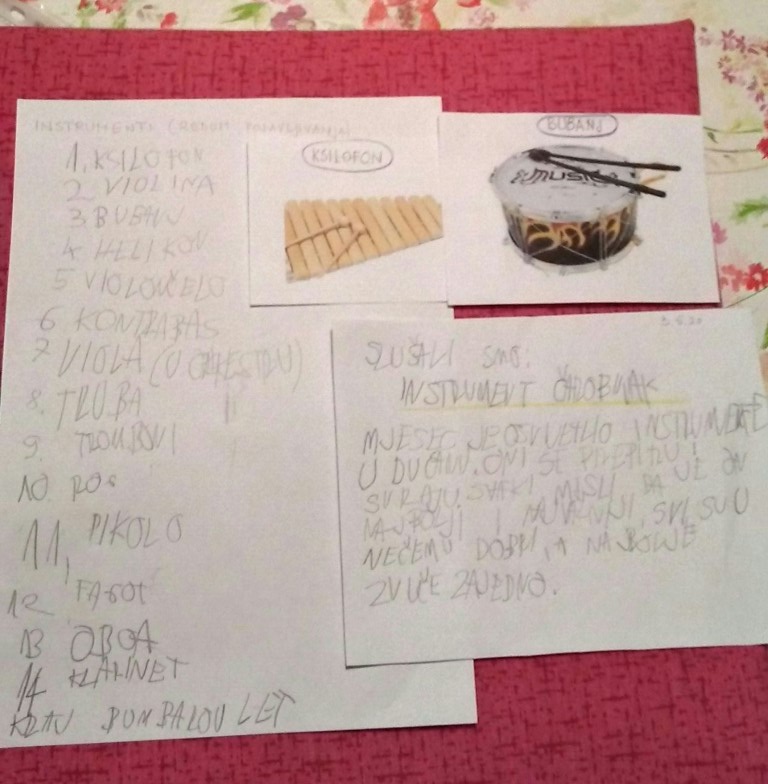 INSTRUMENTI (REDOM POJAVLJIVANJA)
1, KSILOFON
2 VIOLINA
3 BUBANJ
4 HELIKON
5 VIOLONČELO
6 KONTRABAS
7 VIOLA (U ORKESTRU)
8. TRUBA
9. TROMBON
10 ROG
11, PIKOLO
12 FAGOT
13 OBOA
14 KLARINET
KRAJ BUMBAROV LET
KSILOFON
BUBANJ
MUSIC
SLUŠALI SMO:
INSTRUMENT ČAROBNJAK
MJESEC JE OSVIJETLIO INSTRUMENTE
U DUĆANU. ONI SE
SVAĐAJU. SVAKI MISLI DA JE ON
NAJBOLJI I NAJVAŽNIJI. SVI SU U
NEČEMU DOBRI, A NAJBOLJE
ZVUČE ZAJEDNO.